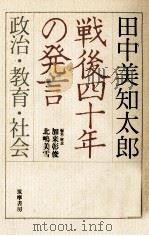 田中美知太郎
戦後四十年
の発言
政治・教育・社会
編集・解説
加来彰俊
北嶋美雪
筑摩書房